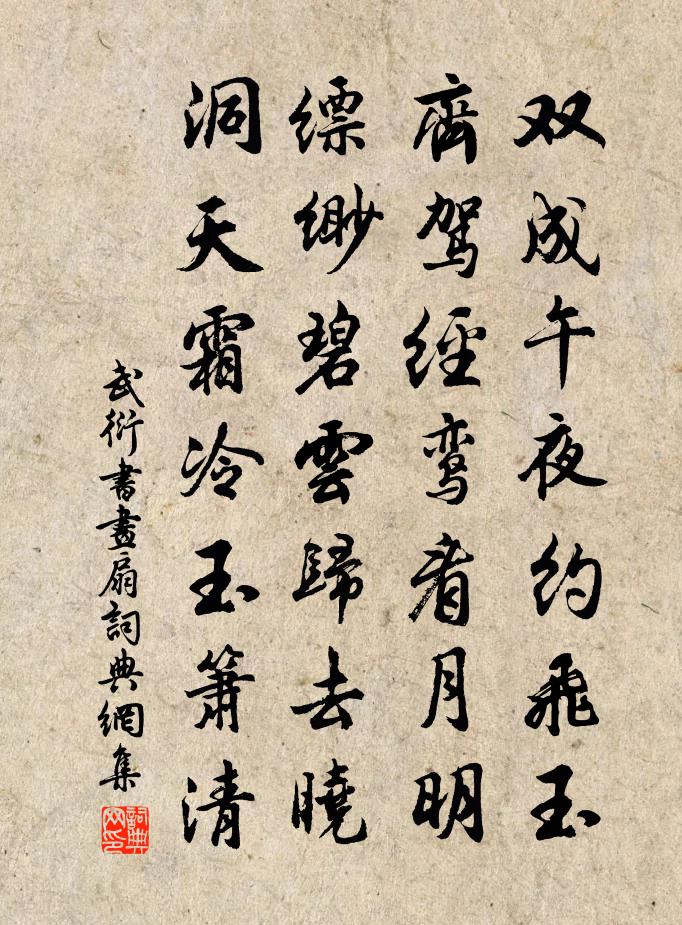 双成午夜约飛玉
齊驾經鸾看月明
缥缈碧雲歸去曉
洞天霜冷玉箫清
武衍書畫扇詞典網集
詞典网印